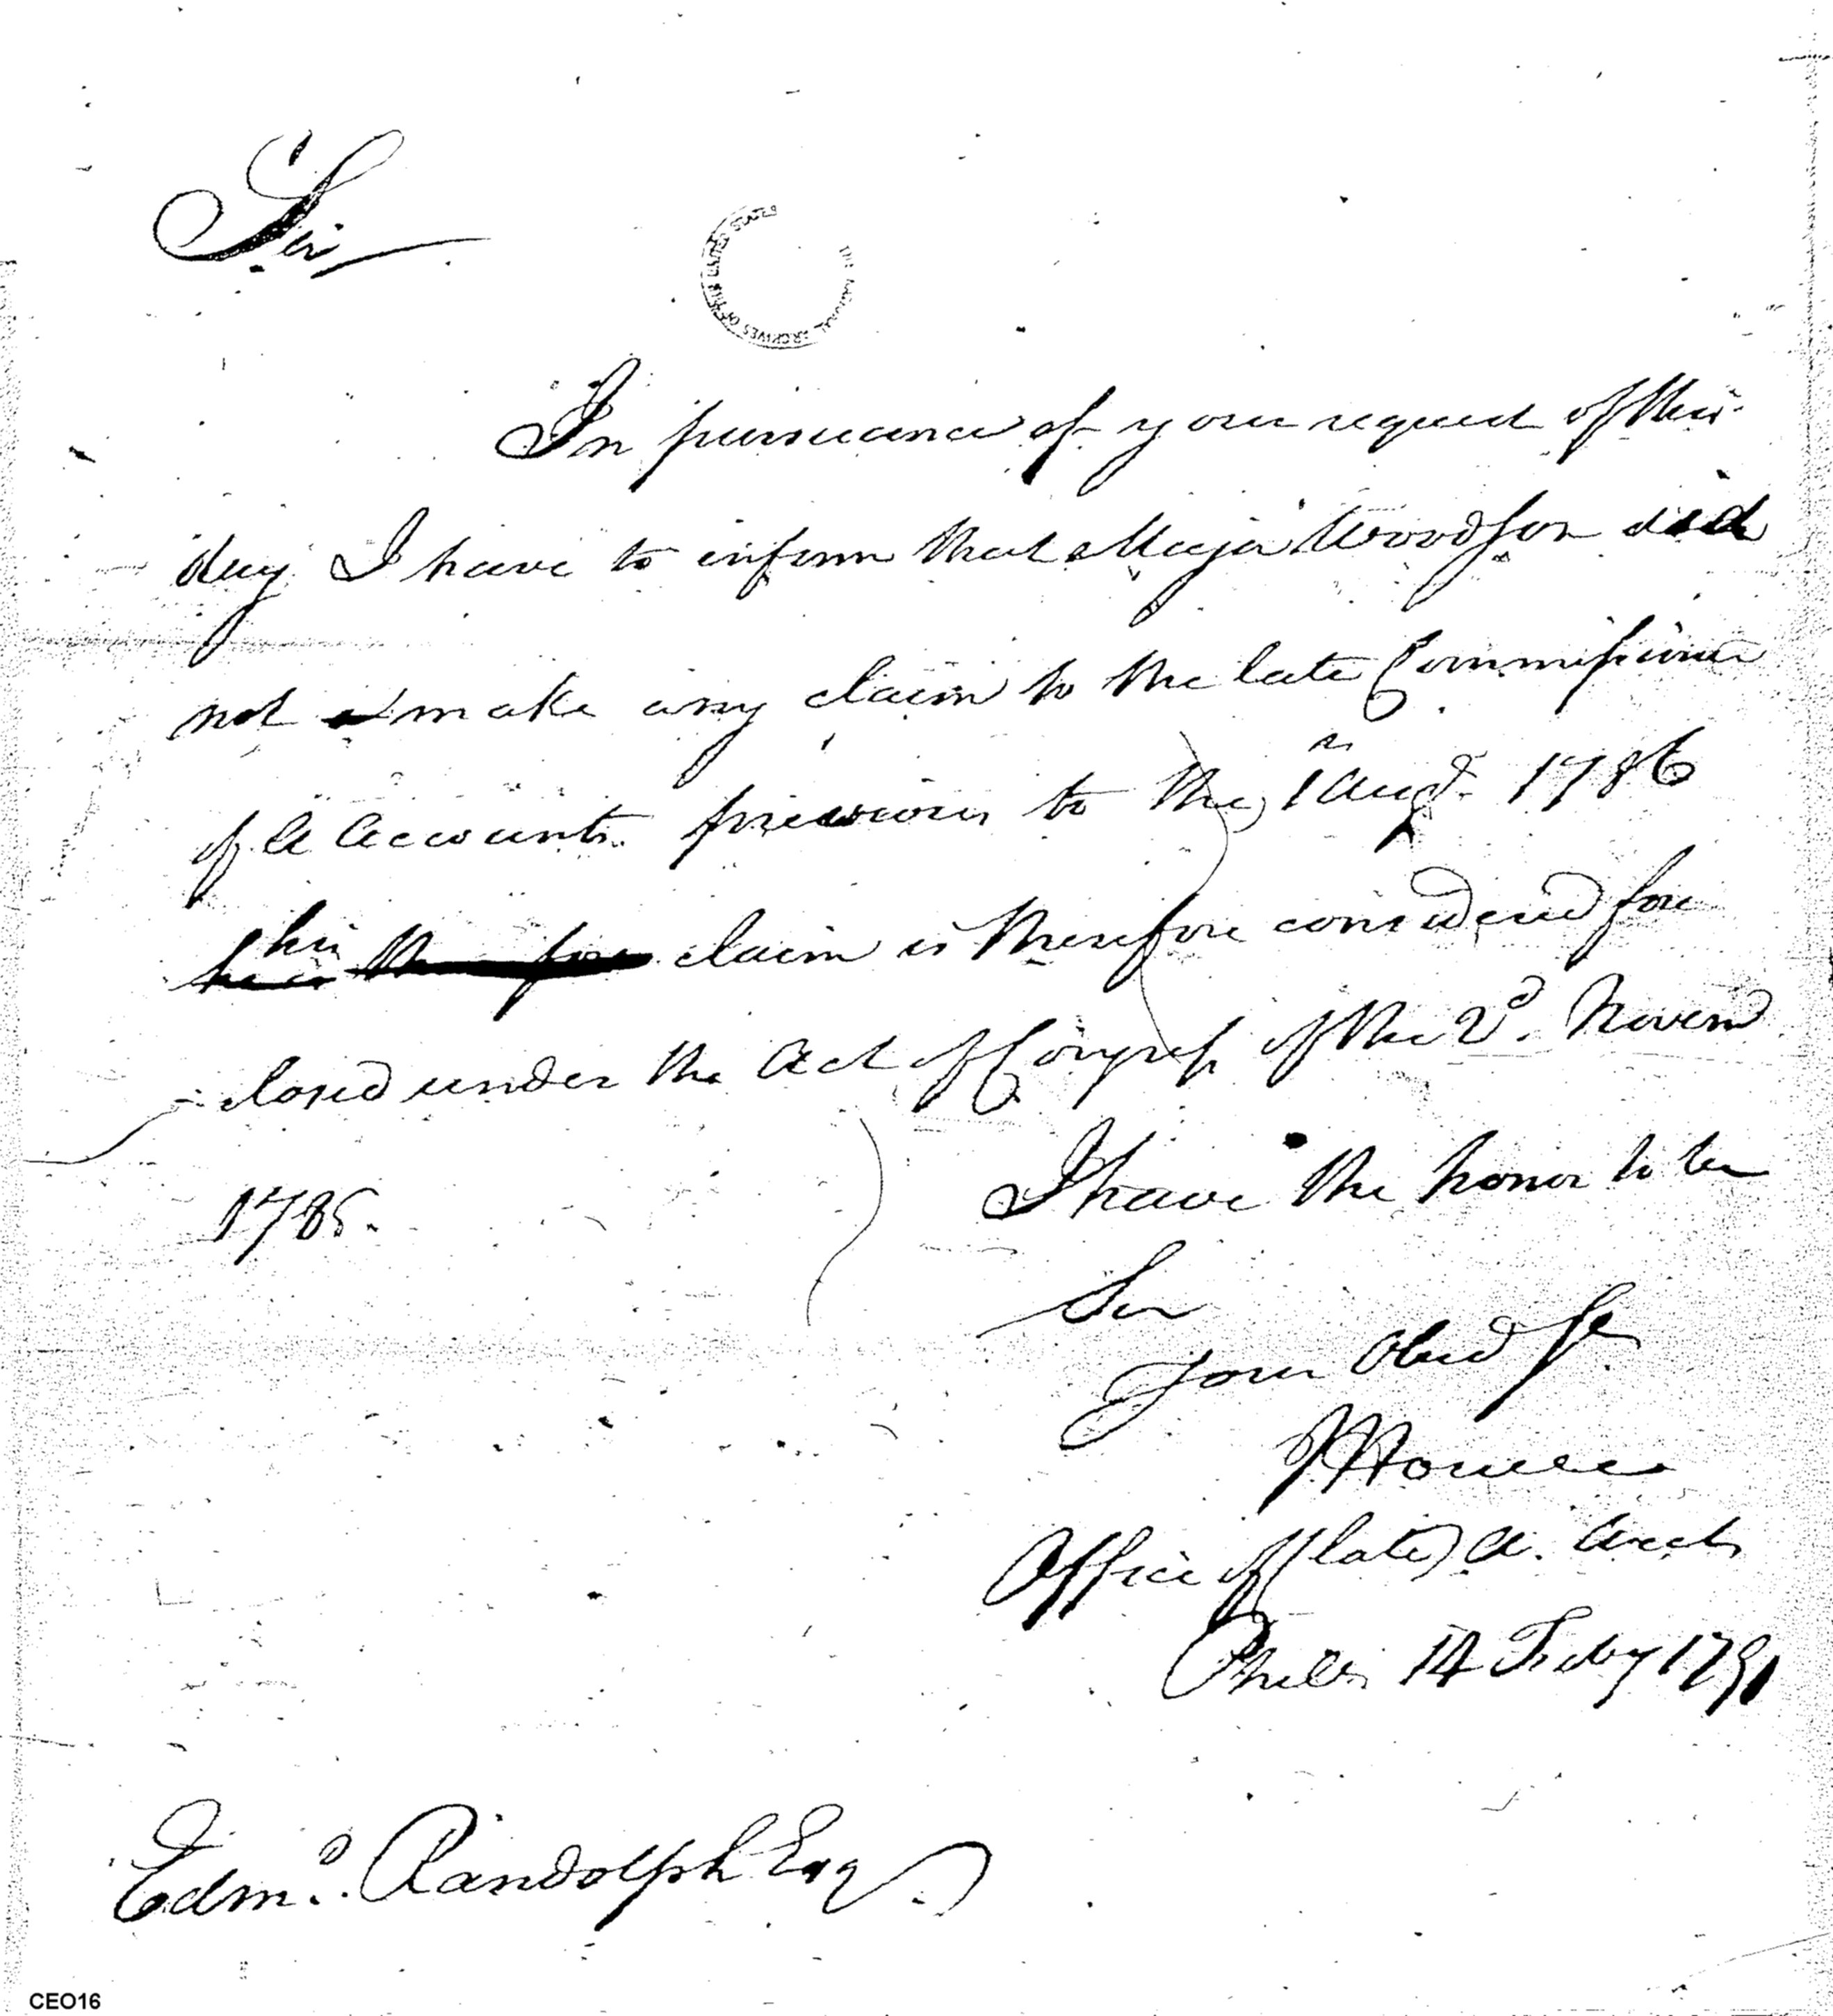 Sir
THE NATIONAL ARCHIVES OF THE UNITED STATES
In pursuance of your request of this
day I have to inform that Major Woodson did
not make any claim to the late Commissioner
of A Accounts previous to the 1st Augt. 1786
his
he is therefore claim is therefore considered fore
closed under the Act of Congress of the 2d. Novem
1785.
I have the honor to be
Sir
Your Obed St.
J Howell
Office of (late) A. Accts
Phila 14 Feby 1791
Edmd. Randolph Esq
CEO16